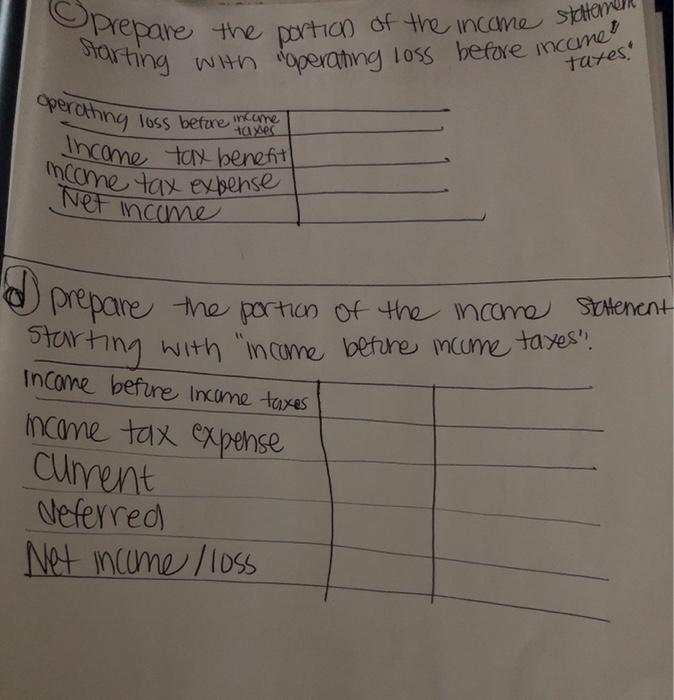 c) prepare the portion of the income statement
starting with "operating loss before income
taxes."
operating loss before income
taxes
Income tax benefit
income tax expense
Net income
d) prepare the portion of the income statement
starting with "income before income taxes".
income before income taxes
income tax expense
current
deferred
Net income/loss